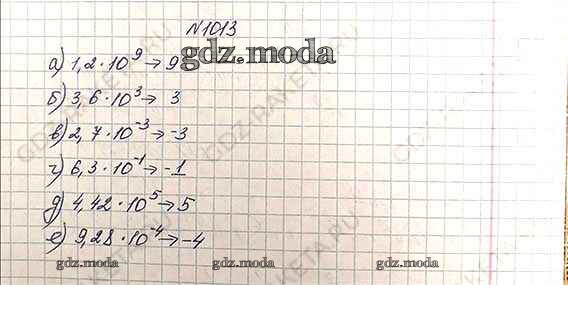 №1013
gdz.moda
а) 1,2·10⁹→ 9
б) 3,6·10³→ 3
в) 2,7·10⁻³→ -3
г) 6,3·10⁻¹→ -1
д) 4,42·10⁵→ 5
е) 9,28·10⁻⁴→ -4
gdz.moda gdz.moda gdz.moda